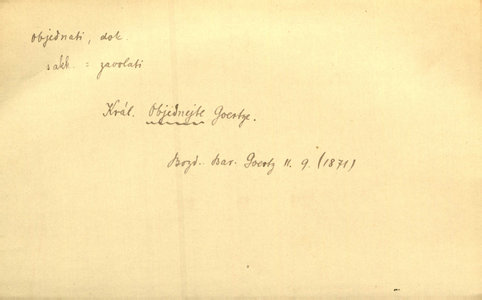 objednati, dok.
zakk. = zavolati
Král. Objednejte Goertze.
Bozd. Bar. Goertz II. 9. (1871)